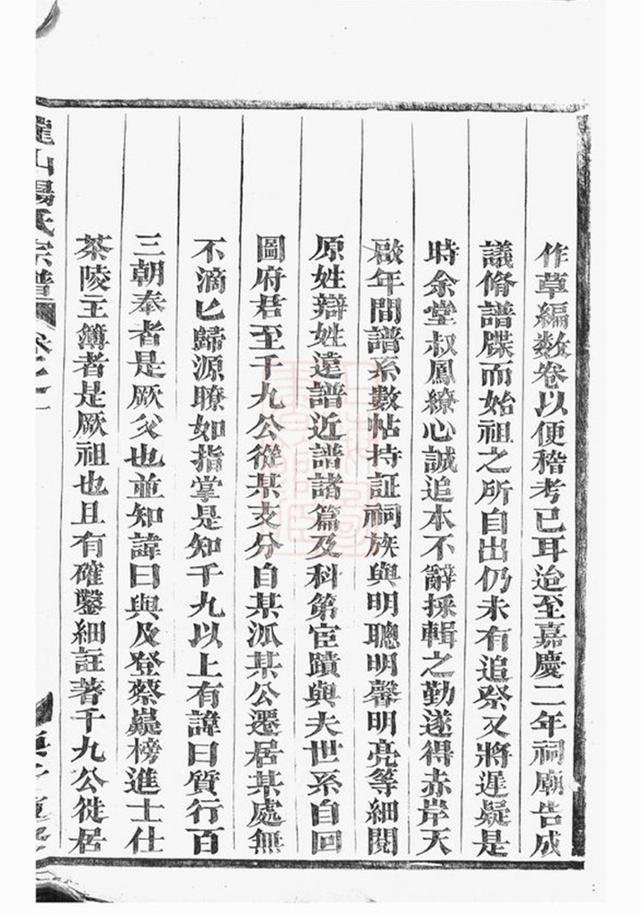 作草編数卷以便稽考已耳迨至嘉慶二年祠廟告成
議脩譜牒而始祖之所自出仍未有追祭又將遲疑是
時余堂叔鳳繚心誠追本不辭採輯之勤遂得赤岸天
啟年間譜系數帖持証祠族與明聰明馨明亮等細閱
原姓辯姓遠譜近譜諸篇及科第宦蹟與夫世系自回
圖府君至千九公從某支分自某派某公遷居某處無
不滴匕歸源暸如指掌是知千九以上有諱曰質行百
三朝奉者是厥父也並知諱曰與及登蔡薿榜進士仕
茶陵主簿者是厥祖也且有確鑿細註著千九公徙居
山楊氏宗譜
卷之一